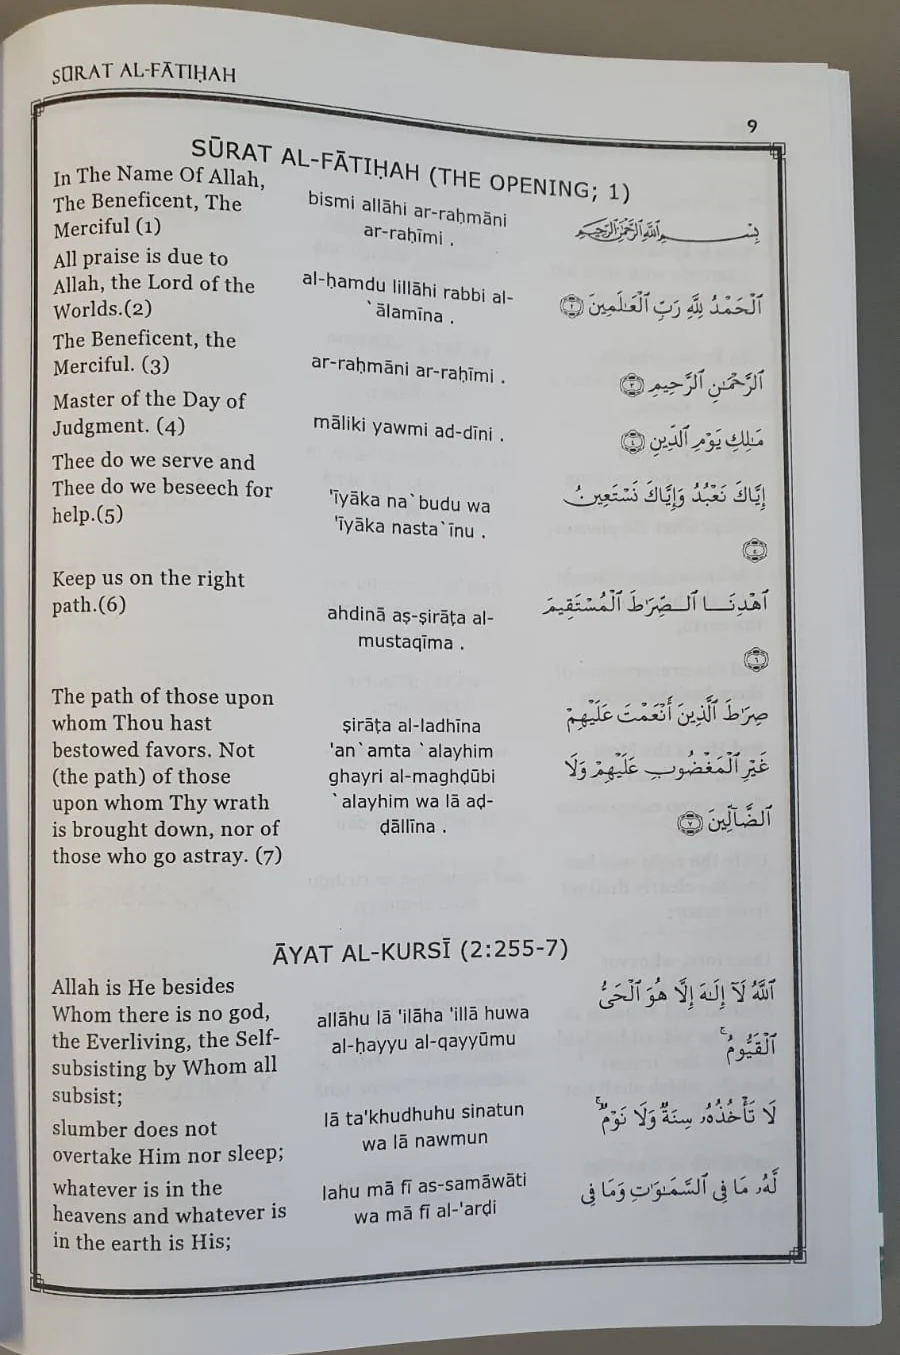 SŪRAT AL-FĀTIḤAH
9
SŪRAT AL-FĀTIḤAH (THE OPENING; 1)
In The Name Of Allah,
The Beneficent, The
Merciful (1)
bismi allāhi ar-raḥmāni
ar-raḥīmi .
بِسْمِ ٱللَّهِ ٱلرَّحْمَٰنِ ٱلرَّحِيمِ
All praise is due to
Allah, the Lord of the
Worlds.(2)
al-ḥamdu lillāhi rabbi al-
`ālamīna .
ٱلْحَمْدُ لِلَّهِ رَبِّ ٱلْعَـٰلَمِينَ ٢
The Beneficent, the
Merciful. (3)
ar-raḥmāni ar-raḥīmi .
ٱلرَّحْمَـٰنِ ٱلرَّحِيمِ ٣
Master of the Day of
Judgment. (4)
māliki yawmi ad-dīni .
مَـٰلِكِ يَوْمِ ٱلدِّينِ ٤
Thee do we serve and
Thee do we beseech for
help.(5)
'īyāka na`budu wa
'īyāka nasta`īnu .
إِيَّاكَ نَعْبُدُ وَإِيَّاكَ نَسْتَعِينُ
Keep us on the right
path.(6)
ahdinā aṣ-ṣirāṭa al-
mustaqīma .
ٱهْدِنَــا ٱلــصِّرَٰطَ ٱلْمُسْتَقِيمَ
٦
The path of those upon
whom Thou hast
bestowed favors. Not
(the path) of those
upon whom Thy wrath
is brought down, nor of
those who go astray. (7)
ṣirāṭa al-ladhīna
'an`amta `alayhim
ghayri al-maghḍūbi
`alayhim wa lā aḍ-
ḍāllīna .
صِرَٰطَ ٱلَّذِينَ أَنْعَمْتَ عَلَيْهِمْ
غَيْرِ ٱلْمَغْضُوبِ عَلَيْهِمْ وَلَا
ٱلضَّآلِّينَ ٧
ĀYAT AL-KURSĪ (2:255-7)
Allah is He besides
Whom there is no god,
the Everliving, the Self-
subsisting by Whom all
subsist;
allāhu lā 'ilāha 'illā huwa
al-ḥayyu al-qayyūmu
ٱللَّهُ لَآ إِلَـٰهَ إِلَّا هُوَ ٱلْحَىُّ
ٱلْقَيُّومُ ۚ
slumber does not
overtake Him nor sleep;
lā ta'khudhuhu sinatun
wa lā nawmun
لَا تَأْخُذُهُۥ سِنَةٌ وَلَا نَوْمٌ ۚ
whatever is in the
heavens and whatever is
in the earth is His;
lahu mā fī as-samāwāti
wa mā fī al-'arḍi
لَّهُۥ مَا فِى ٱلسَّمَـٰوَٰتِ وَمَا فِى